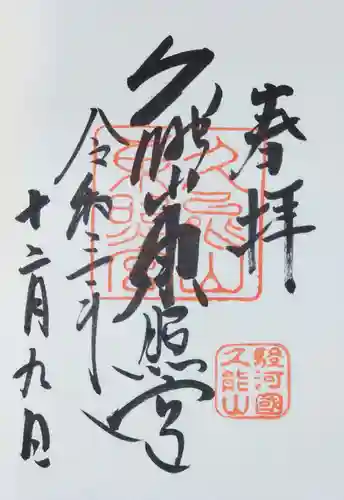 奉拝
久能山東照宮
令和三年
十二月九日
駿河國
久能山